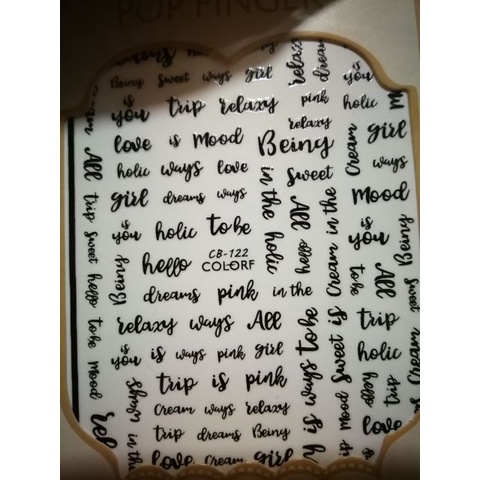 POP FINGER
Being Sweet ways girl
relaxy
dreams
is you
is you trip relaxy pink holic
relaxy
love is Mood Being
Cream girl
holic ways love Sweet ways
girl dreams ways in the holic All Mood
is you holic to be is you
hello CB-122 hello Cream in the
COLORF
dreams pink in the to be All
relaxy ways All trip
is you is ways pink girl to be Sweet is holic
trip is pink hello trip
Cream ways relaxy
trip dreams Being love
love Cream girl
All trip sweet hello to be Mood
Being
ways in th
ways is
Mood
Being
sweet
Cream